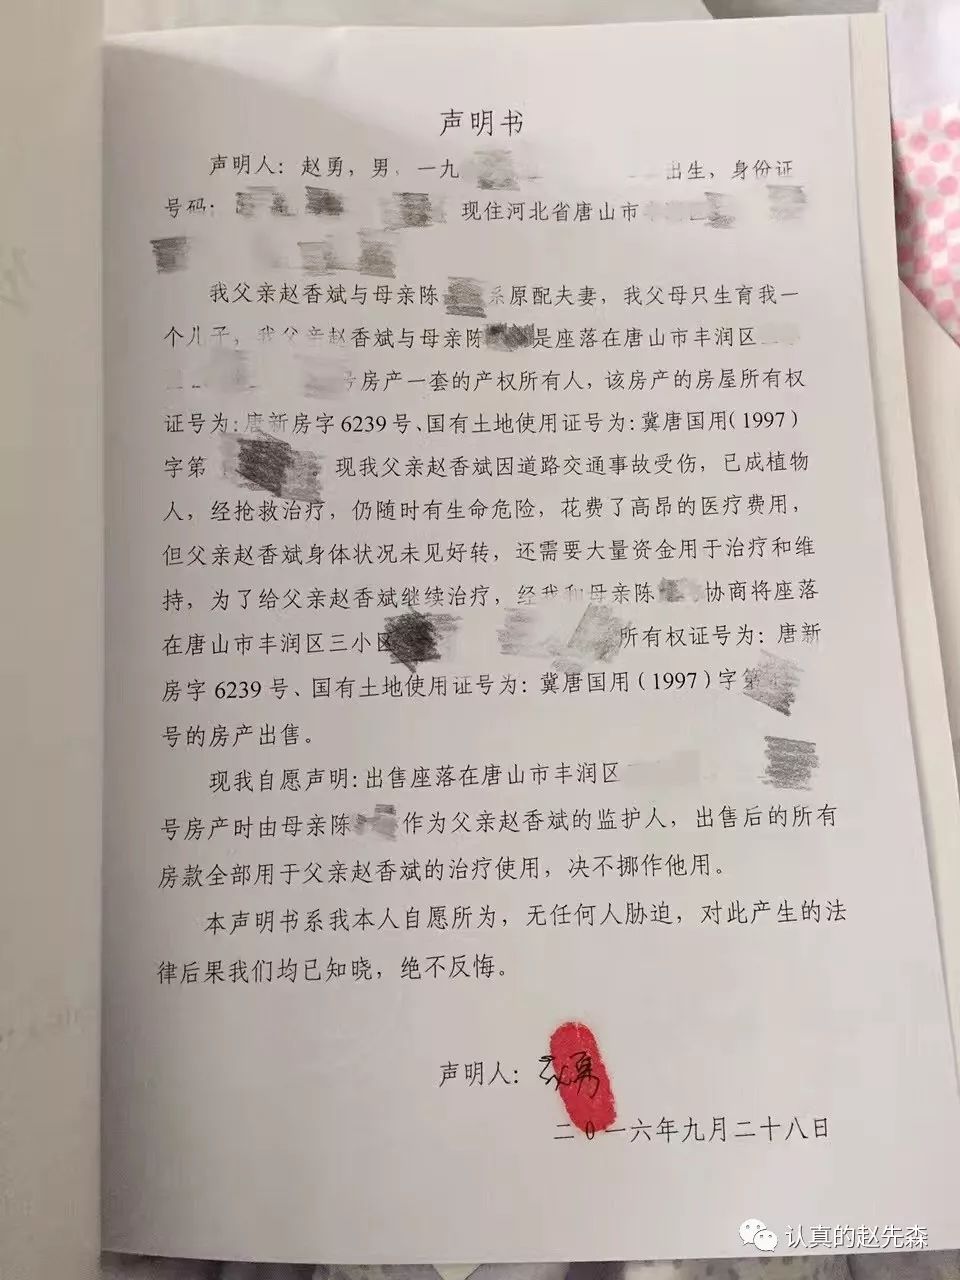 声明书
声明人：赵勇，男，一九 出生，身份证
号码： 现住河北省唐山市
我父亲赵香斌与母亲陈 系原配夫妻，我父母只生育我一
个儿子，我父亲赵香斌与母亲陈 是座落在唐山市丰润区
号房产一套的产权所有人，该房产的房屋所有权
证号为：唐新房字 6239 号、国有土地使用证号为：冀唐国用（1997）
字第 。现我父亲赵香斌因道路交通事故受伤，已成植物
人，经抢救治疗，仍随时有生命危险，花费了高昂的医疗费用，
但父亲赵香斌身体状况未见好转，还需要大量资金用于治疗和维
持，为了给父亲赵香斌继续治疗，经我和母亲陈 协商将座落
在唐山市丰润区三小区 所有权证号为：唐新
房字 6239 号、国有土地使用证号为：冀唐国用（1997）字第
号的房产出售。
现我自愿声明：出售座落在唐山市丰润区
号房产时由母亲陈 作为父亲赵香斌的监护人，出售后的所有
房款全部用于父亲赵香斌的治疗使用，决不挪作他用。
本声明书系我本人自愿所为，无任何人胁迫，对此产生的法
律后果我们均已知晓，绝不反悔。
声明人：赵勇
二0一六年九月二十八日
认真的赵先森